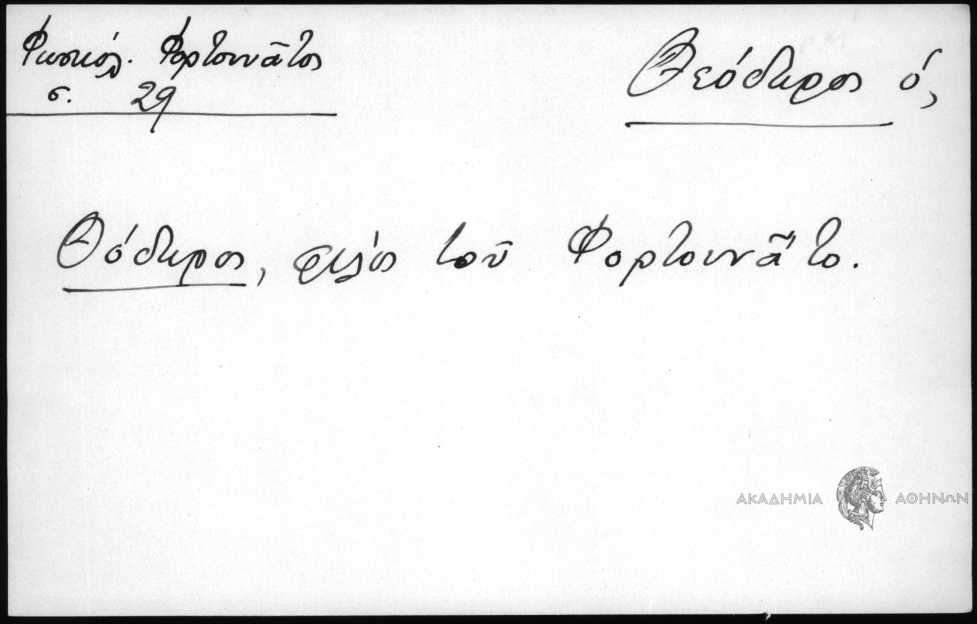 Φωσκόλ. Φορτουνᾶτος
σ. 29
Θεόδωρος ὁ,
Θόδωρος, φίλος τοῦ Φορτουνᾶτο.
ΑΚΑΔΗΜΙΑ ΑΘΗΝΩΝ